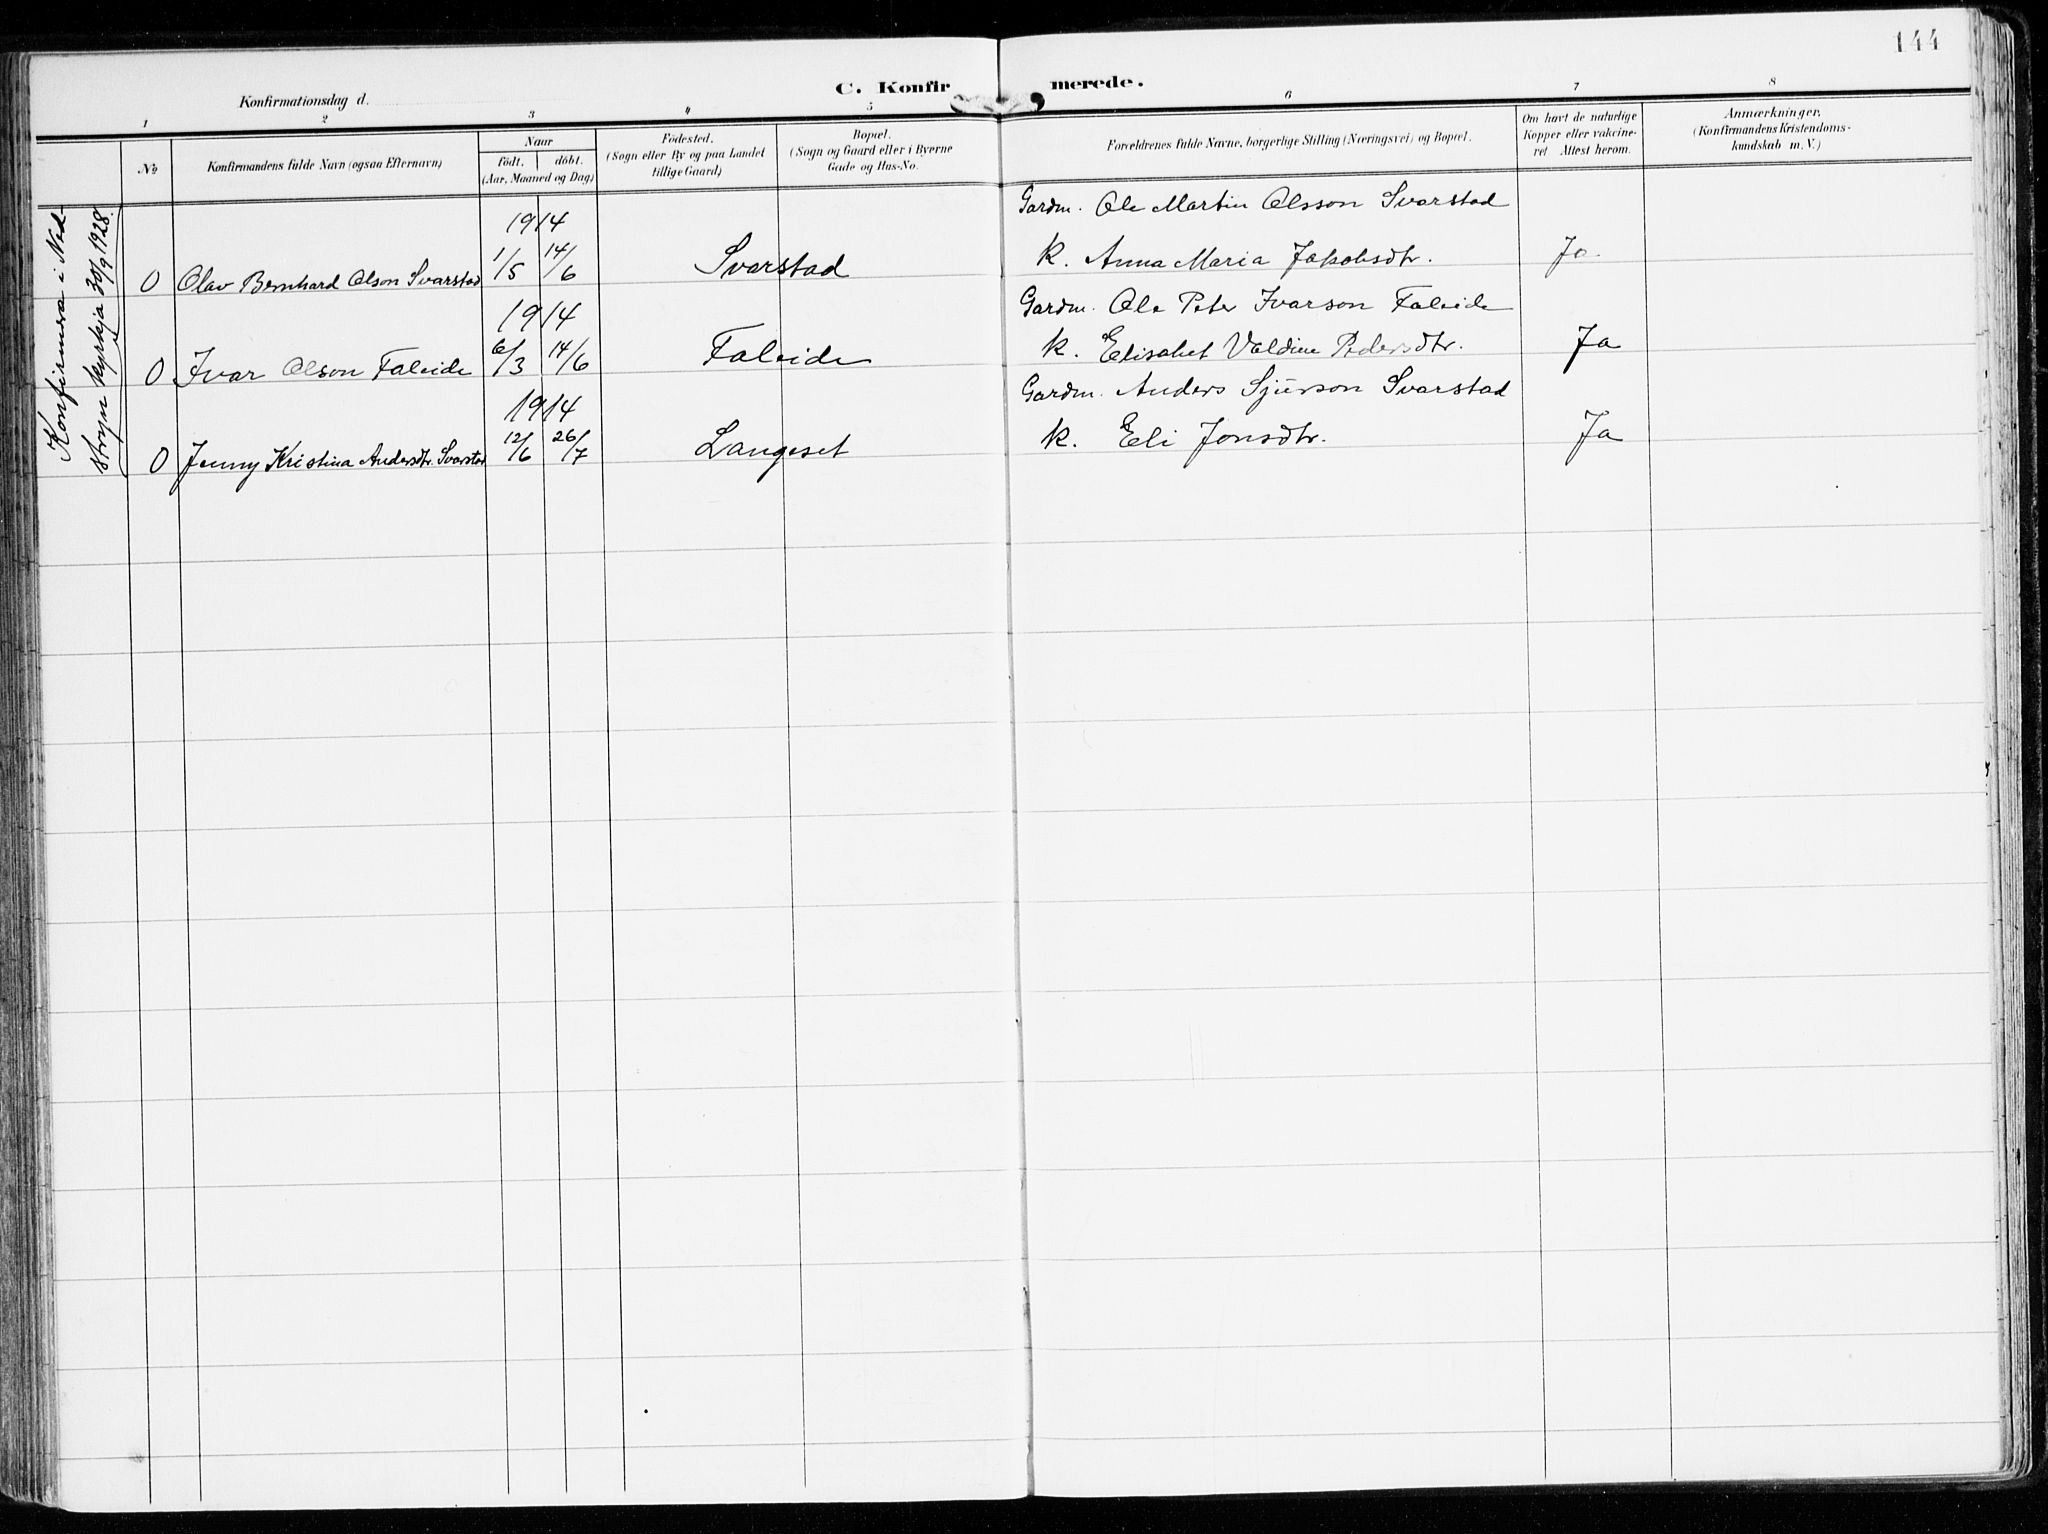 144
C. Konfirmerede.
Konfirmationsdag d.
1 2 3 4 5 6 7 8
No
Konfirmandens fulde Navn (ogsaa Efternavn)
Naar
født. døbt.
(Aar, Maaned og Dag)
Fødested.
(Sogn eller By og paa Landet
tillige Gaard)
Bopæl.
(Sogn og Gaard eller i Byerne
Gade og Hus-No.
Forældrenes fulde Navne, borgerlige Stilling (Næringsvei) og Bopæl.
Om havt de naturlige
Kopper eller vakcine-
ret Attest herom.
Anmærkninger.
(Konfirmandens Kristendoms-
kundskab m. V.)
Konfirmera i Ned-
stryn kyrkja 30/9 1928.
1914
Gardm. Ole Martin Olsson Svarstad
0 Olav Bernhard Olson Svarstad 1/5 14/6 Svarstad K. Anna Maria Jakobsdtr. Ja
1914
Gardm. Ole Peter Ivarson Faleide
0 Ivar Olson Faleide 6/3 14/6 Faleide K. Elisabet Valdine Pedersdtr. Ja
1914
Gardm. Anders Sjurson Svarstad
0 Jenny Kristina Andersdtr. Svarstad 12/6 26/7 Langeset K. Eli Jonsdtr. Ja